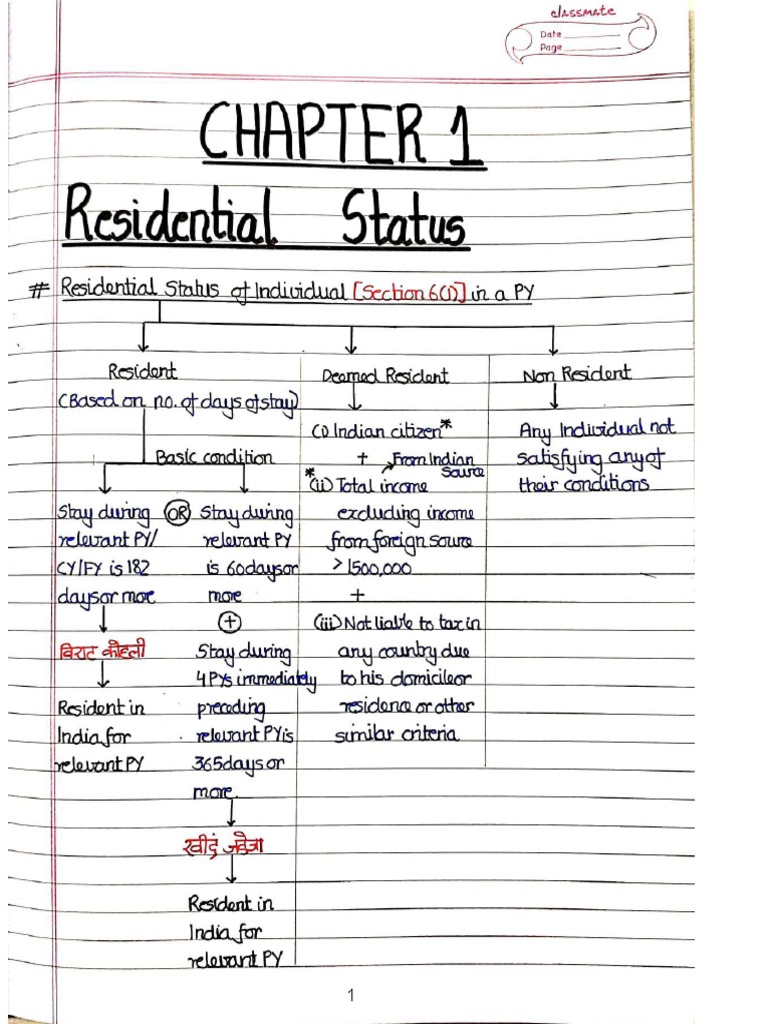 classmate
Date
Page
CHAPTER 1
Residential Status
# Residential Status of Individual [Section 6(1)] in a PY
Resident
(Based on no. of days of stay)
Basic condition
Stay during
relevant PY/
CY/FY is 182
days or more
विराट कौहली
Resident in
India for
relevant PY
OR
Stay during
relevant PY
is 60 days or
more
+
Stay during
4 PYs immediately
preceding
relevant PY is
365 days or
more.
रवींद्र जडेजा
Resident in
India for
relevant PY
Deamed Resident
(i) Indian citizen*
+
From Indian
Source
*(ii) Total income
excluding income
from foreign source
> 1500,000
+
(iii) Not liable to tax in
any country due
to his domicile or
residence or other
similar criteria
Non Resident
Any Individual not
satisfying any of
their conditions
1